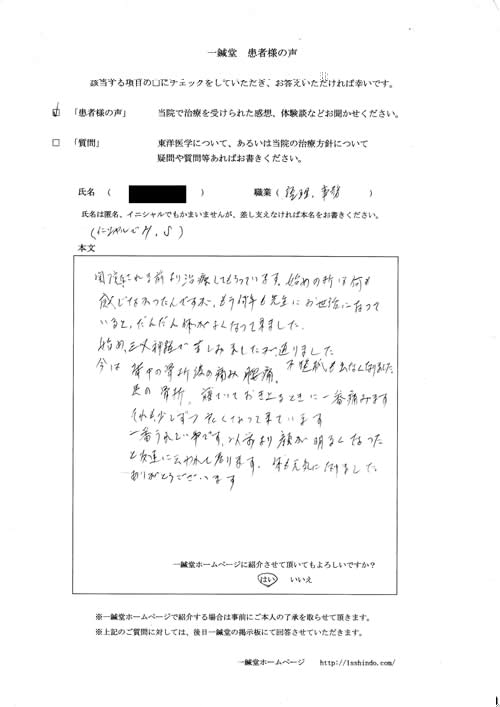 一鍼堂 患者様の声
該当する項目の□にチェックをしていただき、お答えいただければ幸いです。
☑ 「患者様の声」 当院で治療を受けられた感想、体験談などお聞かせください。
□ 「質問」 東洋医学について、あるいは当院の治療方針について
疑問や質問等あればお書きください。
氏名 ( ) 職業 ( 経理、事務 )
氏名は匿名、イニシャルでもかまいませんが、差し支えなければ本名をお書きください。
(イニシャルで M.S)
本文
開院される前より治療してもらっています。始めの折は何も
感じなかったんですが、もう何年も先生にお世話になって
いると、だんだん体がよくなって来ました。
始め、三叉神経が 痛みましたが、直りました
今は 背中の骨折後の痛み 腰痛。不整脈も出なくなりました
足の骨折、寝ていておき上るときに一番痛みます
それも少しずつ なくなって来ています
一番うれしい事です、以前より顔が明るくなった
と友達に云われて居ります。体も元気になりました
ありがとうございます
一鍼堂ホームページに紹介させて頂いてもよろしいですか?
はい いいえ
※一鍼堂ホームページで紹介する場合は事前にご本人の了承を取らせて頂きます。
※上記のご質問に対しては、後日一鍼堂の掲示板にて回答させていただきます。
一鍼堂ホームページ http://1sshindo.com/